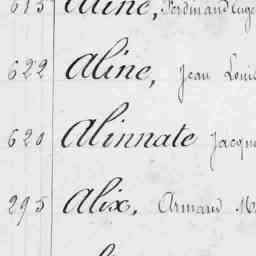 615 Aline, Ferdinand Eug
622 Aline, Jean Loui
620 Alinnate Jacque
295 Alix, Armand M